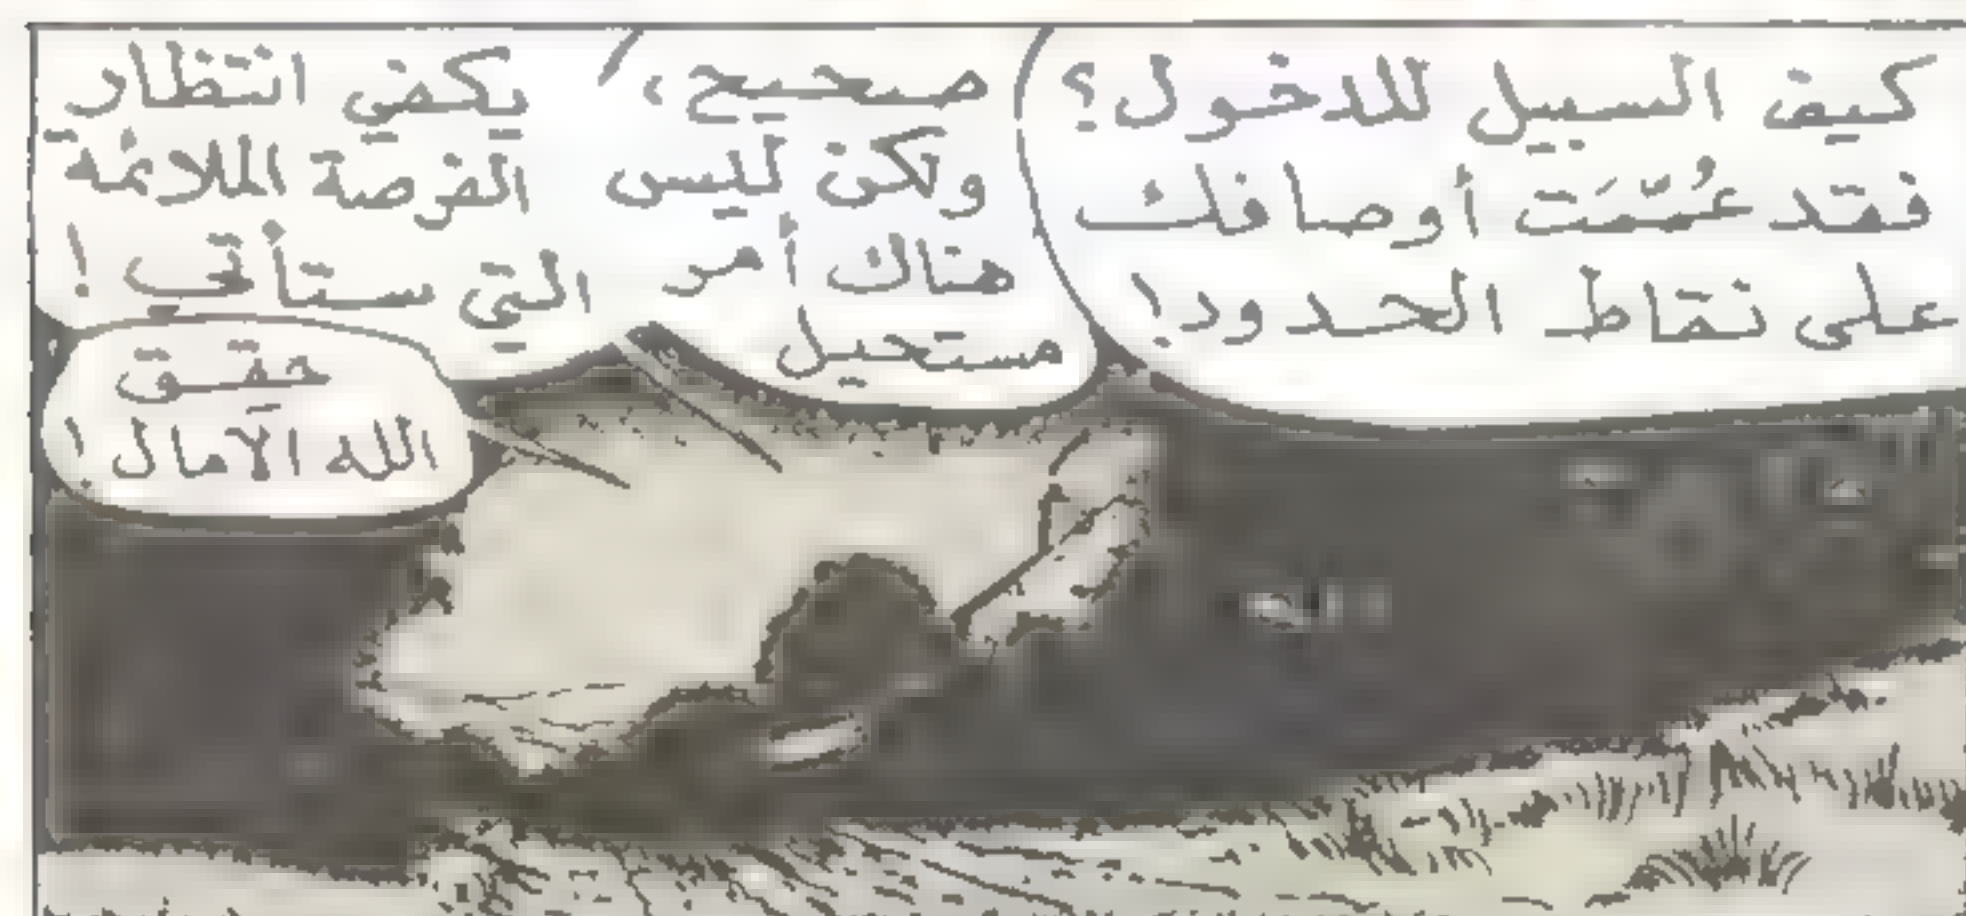 كيف السبيل للدخول؟
فقد عُمّمَت أوصافك
على نقاط الحدود!
صحيح،
ولكن ليس
هناك أمر
مستحيل
يكفي انتظار
الفرصة الملائمة
التي ستأتي!
حقق
الله الآمال!